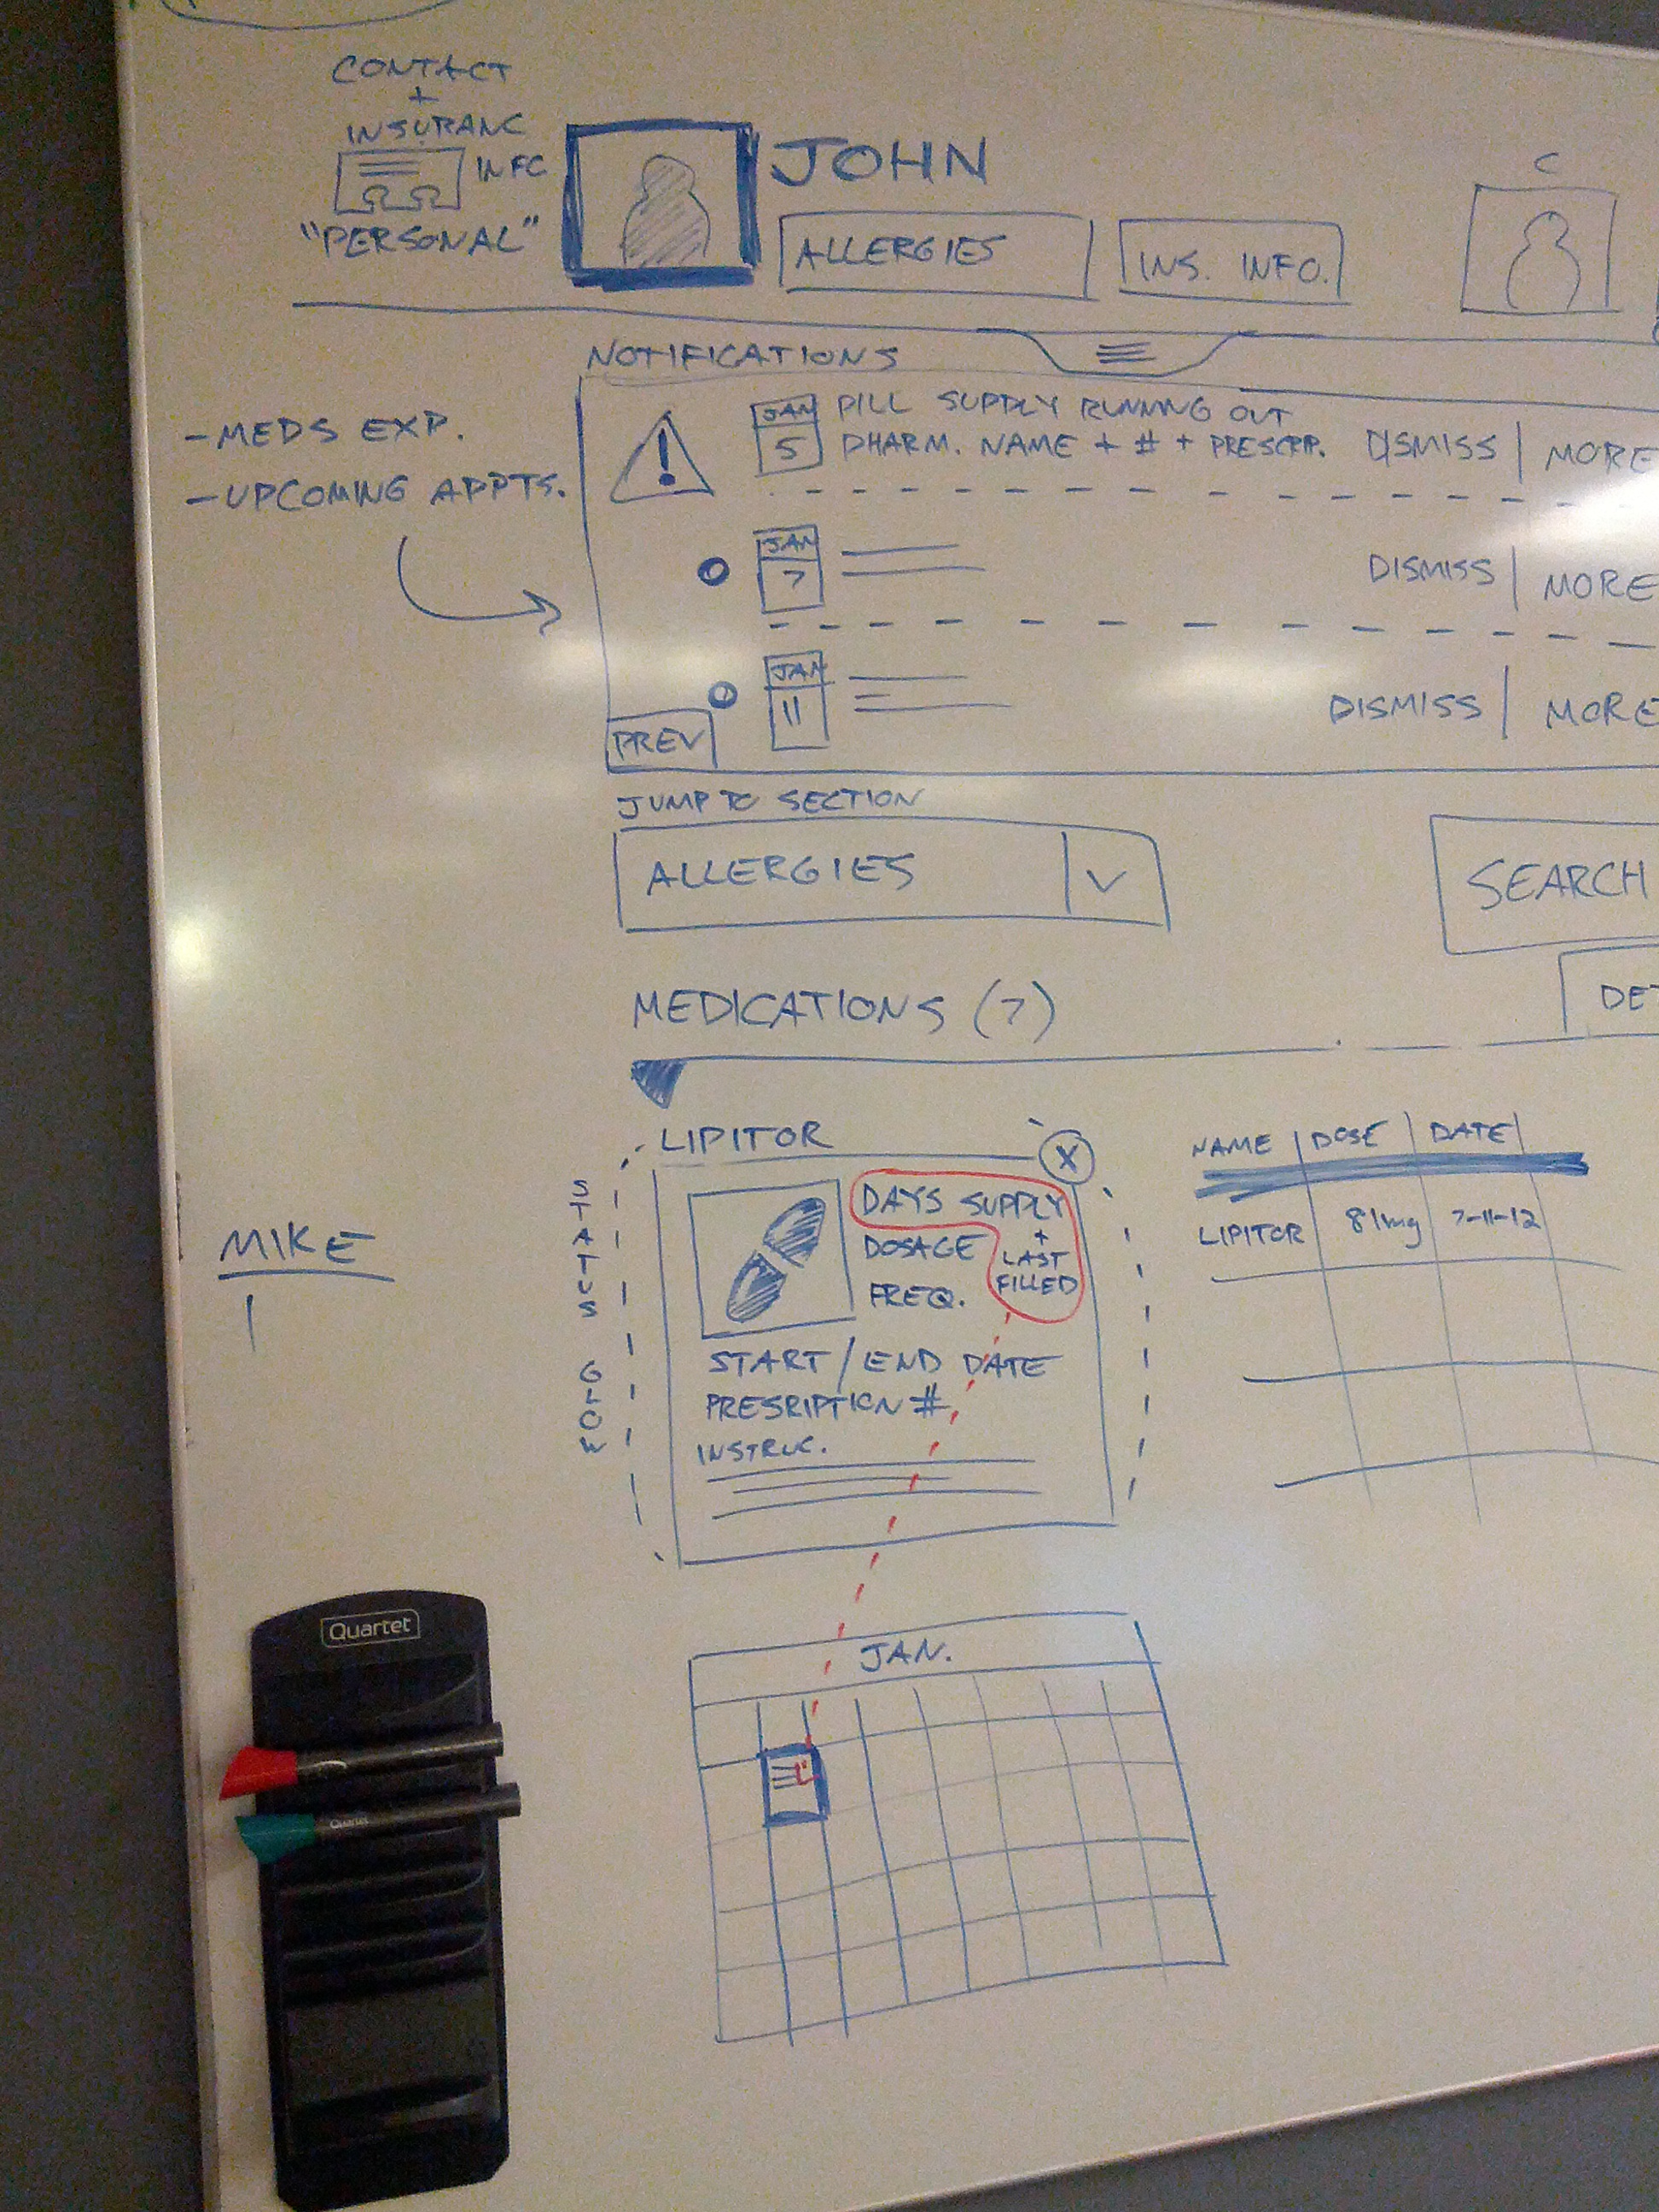 CONTACT
+
INSURANC
INFO
"PERSONAL"
JOHN
ALLERGIES
INS. INFO.
C
NOTIFICATIONS
- MEDS EXP.
- UPCOMING APPTS.
JAN
5
PILL SUPPLY RUNNING OUT
PHARM. NAME + # + PRESCRIP.
DISMISS | MORE
JAN
7
DISMISS | MORE
JAN
11
DISMISS | MORE
PREV
JUMP TO SECTION
ALLERGIES
SEARCH
MEDICATIONS (7)
DET
LIPITOR
X
STATUS GLOW
DAYS SUPPLY
+
LAST
FILLED
DOSAGE
FREQ.
START / END DATE
PRESRIPTION #
INSTRUC.
NAME | DOSE | DATE
LIPITOR 81mg 7-11-12
MIKE
JAN.
Quartet
Quartet